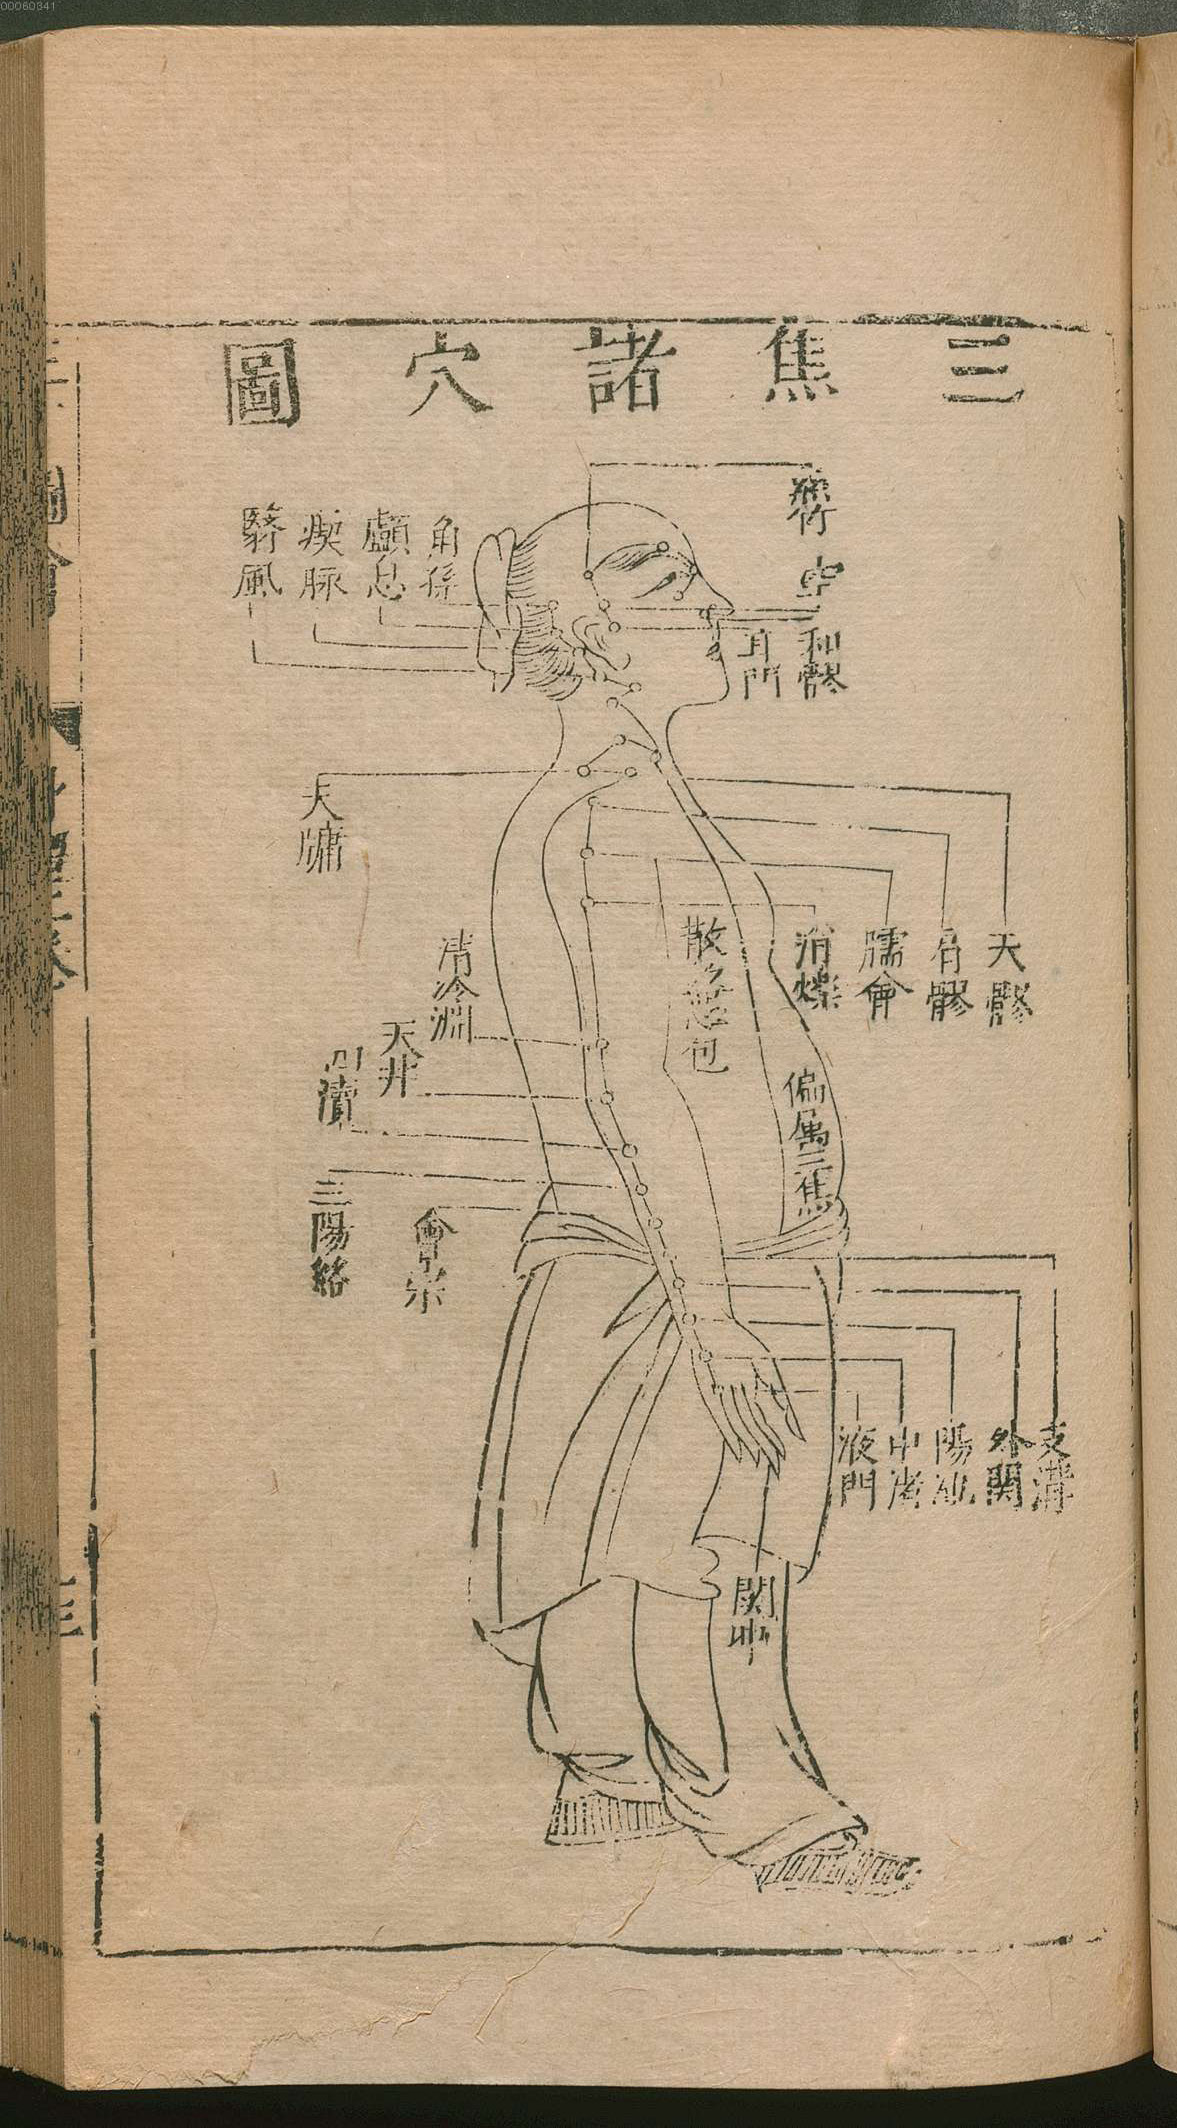 00060341
三焦諸穴圖
絲竹空
和髎
耳門
角孫
顱息
瘈脉
翳風
天牖
天髎
肩髎
臑會
消爍
散絡心包
偏属三焦
清冷淵
天井
四瀆
三陽絡
會宗
支溝
外関
陽池
中渚
液門
関冲